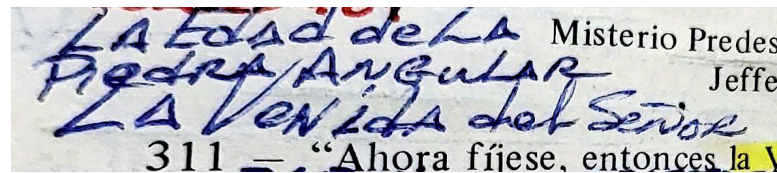 LA Edad de LA Misterio Predes
Piedra Angular Jeffe
LA Venida del Señor
311 — “Ahora fíjese, entonces la V